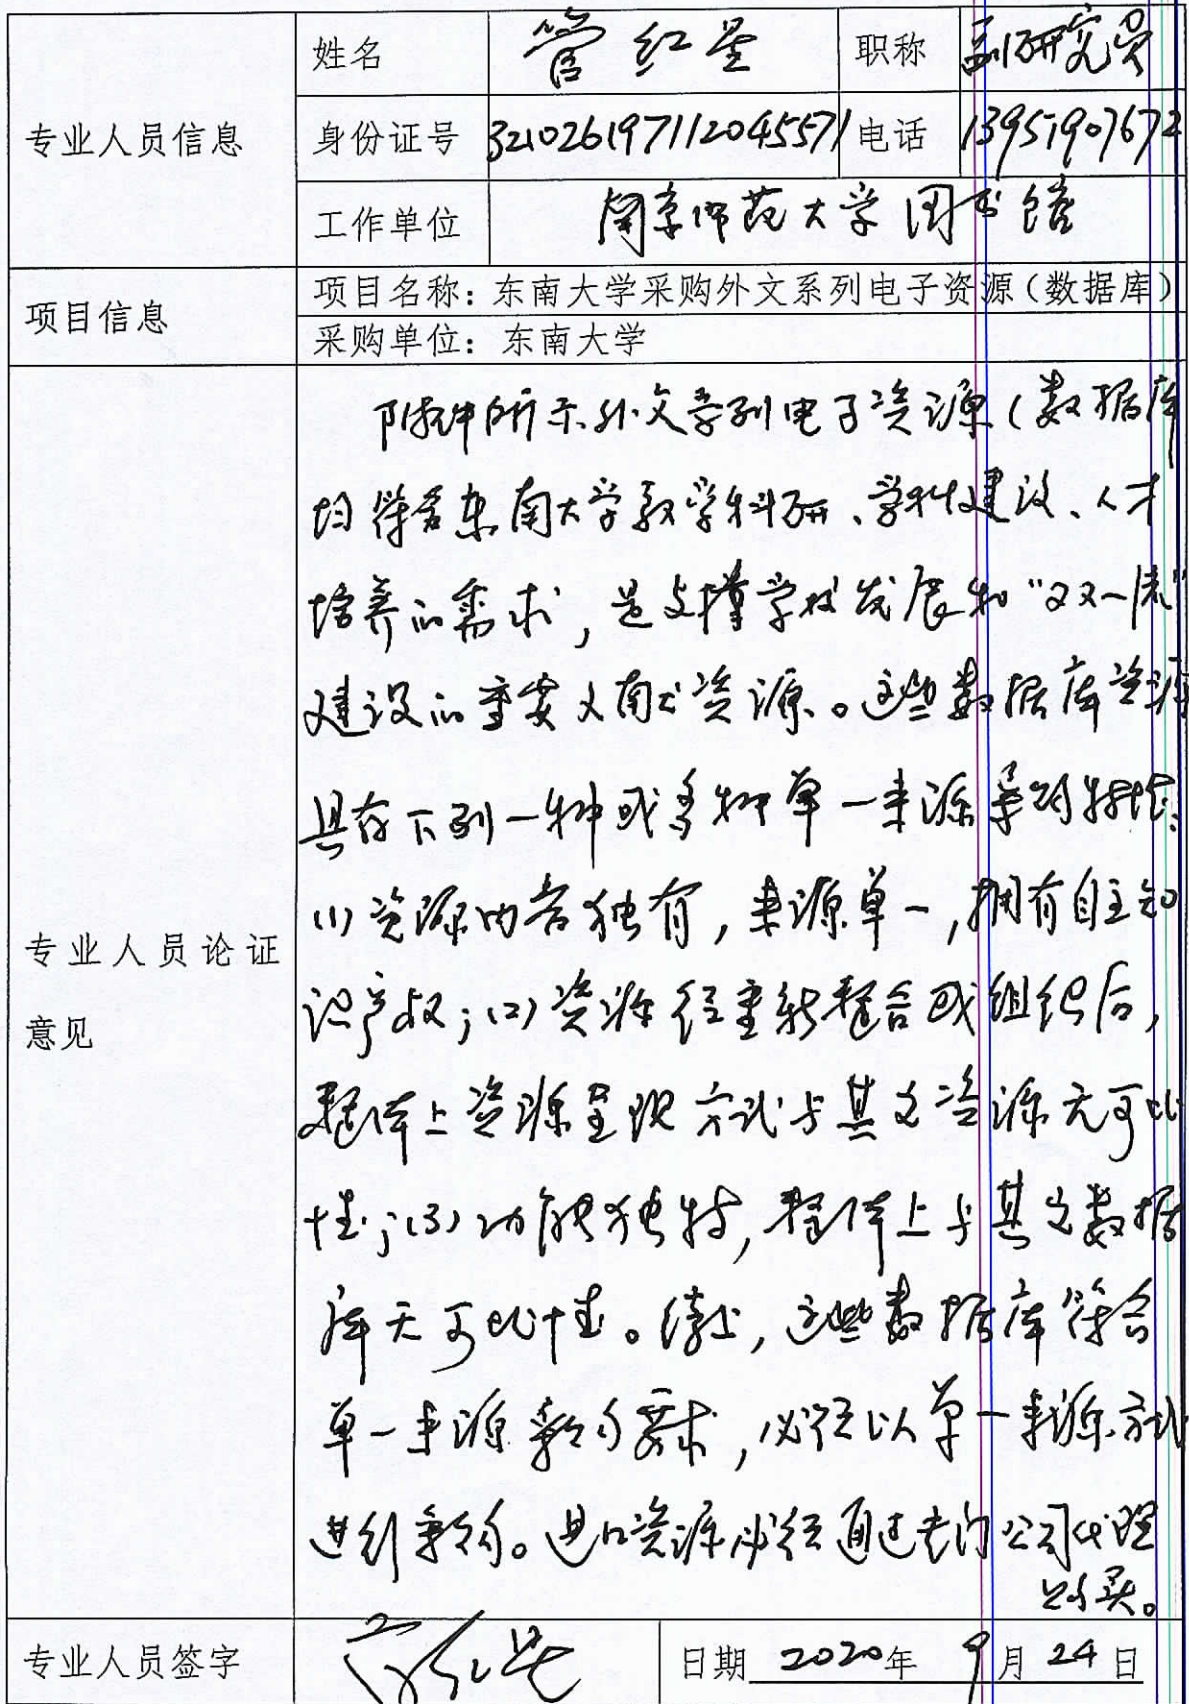 专业人员信息
姓名 管红星 职称 副研究员
身份证号 321026197112045571 电话 13951907672
工作单位 南京师范大学图书馆
项目信息
项目名称：东南大学采购外文系列电子资源（数据库）
采购单位：东南大学
专业人员论证
意见
附件所示外文系列电子资源（数据库
均符合东南大学教学科研、学科建设、人才
培养的需求，是支撑学校发展和“双一流”
建设的重要文献资源。这些数据库资源
具有下列一种或多种单一来源采购特性：
(1)资源内容独有，来源单一，拥有自主知
识产权；(2)资源经重新整合或组织后，
整体上资源呈现方式与其它资源无可比
性；(3)功能独特，整体上与其它数据
库无可比性。综上，这些数据库符合
单一来源采购要求，必须以单一来源方式
进行采购。进口资源必须通过专门公司代理
购买。
专业人员签字 管红星 日期 2020年 9月 24日